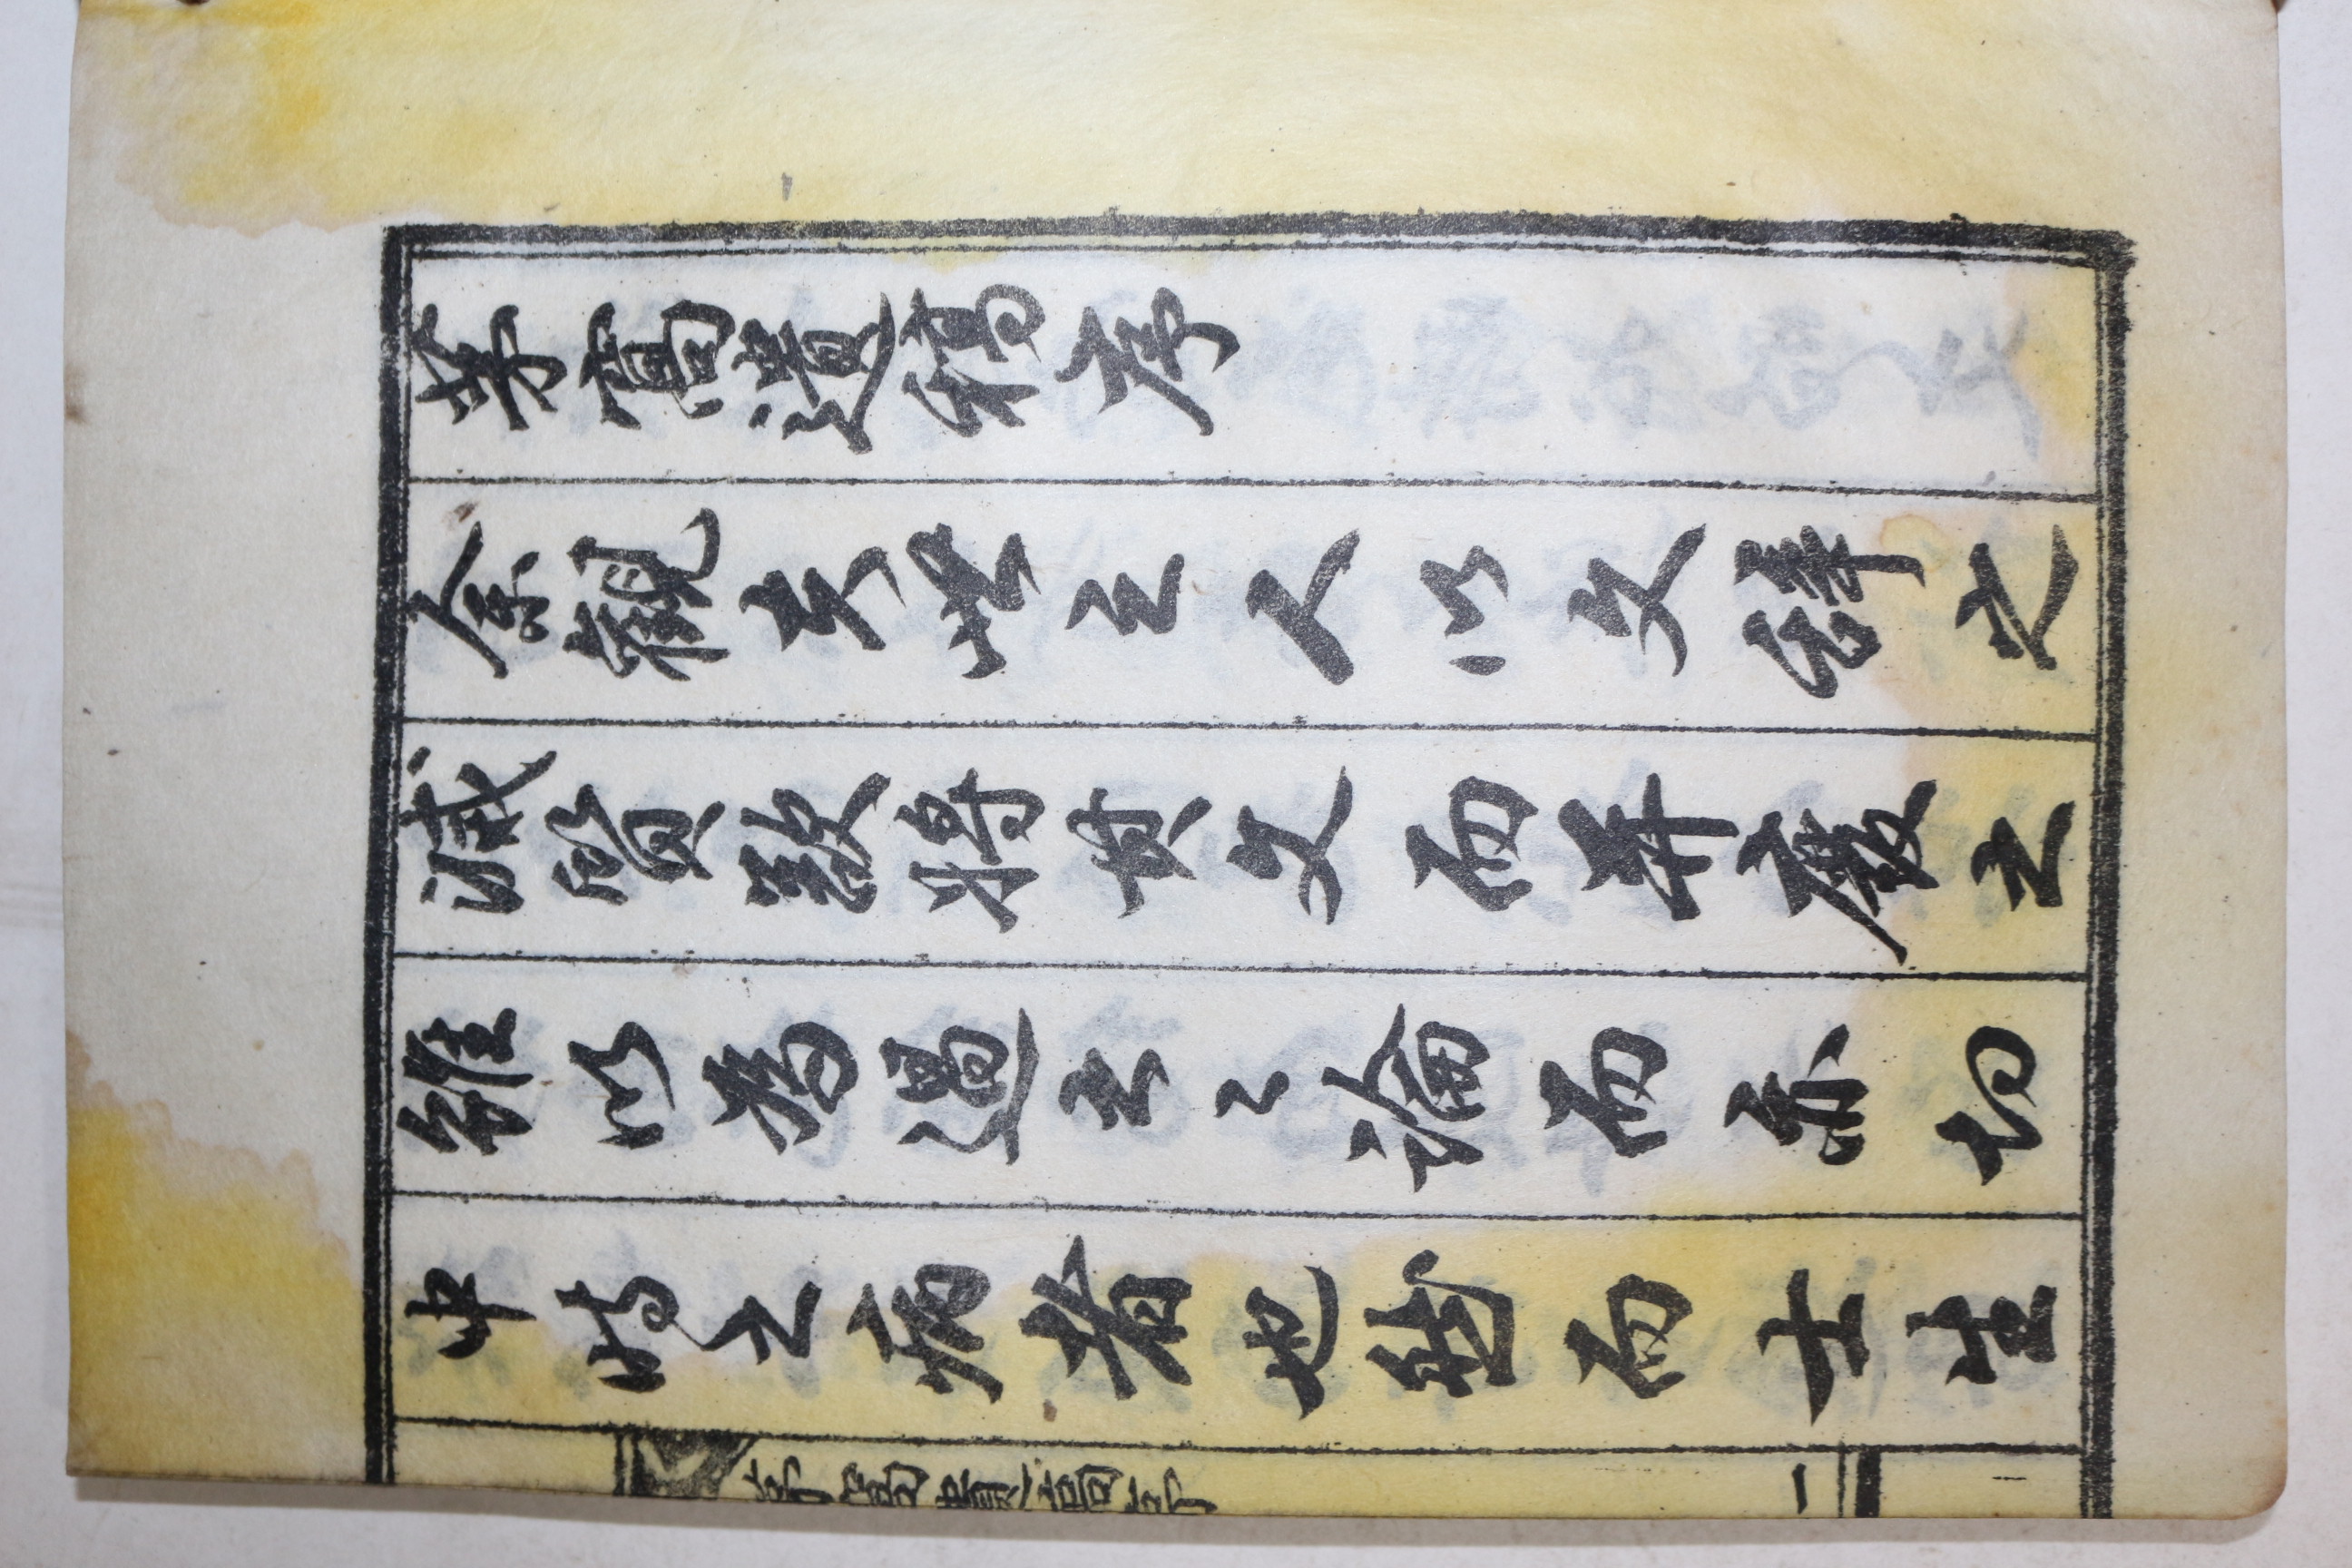 茅窩遺稿序
余觀夫世之人以文辞之
滅質欲將其文而并廢之
雖以為過之之論而亦切
中時之病者也然而士生
茅窩遺稿序
一